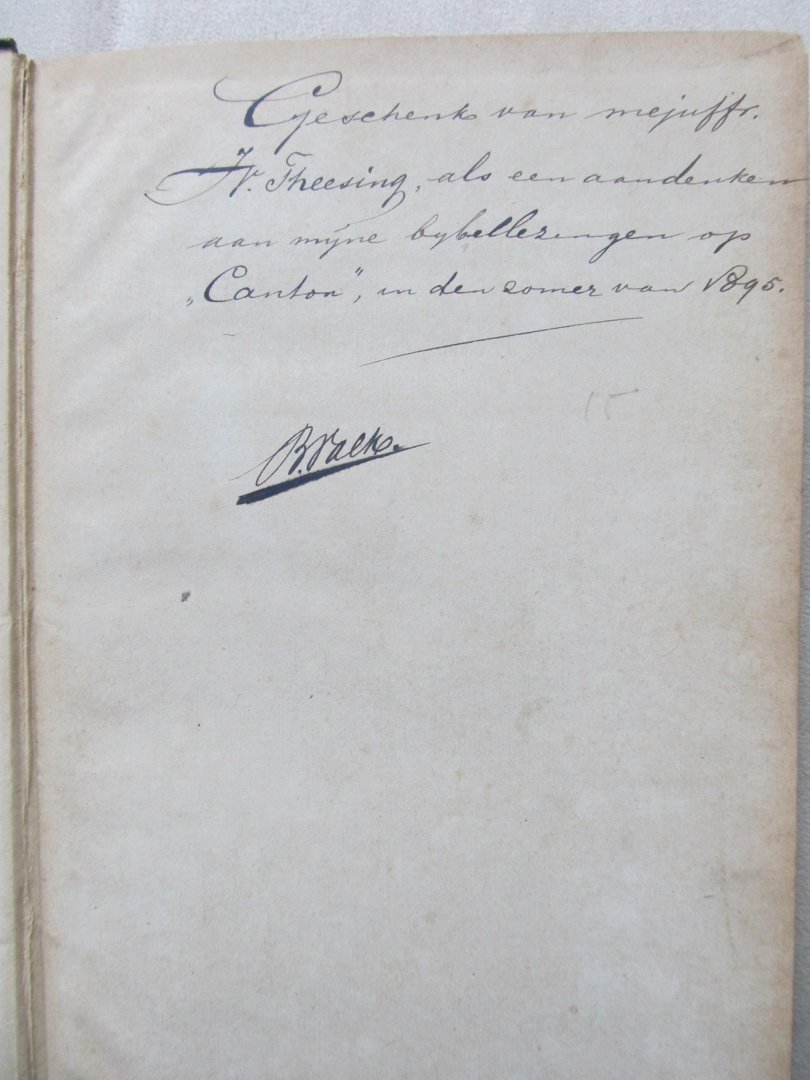 Geschenk van mejuffr.
Theesing, als een aandenken
aan mijne bybellezingen op
„Canton", in den zomer van 1895.
15
B. Valk.